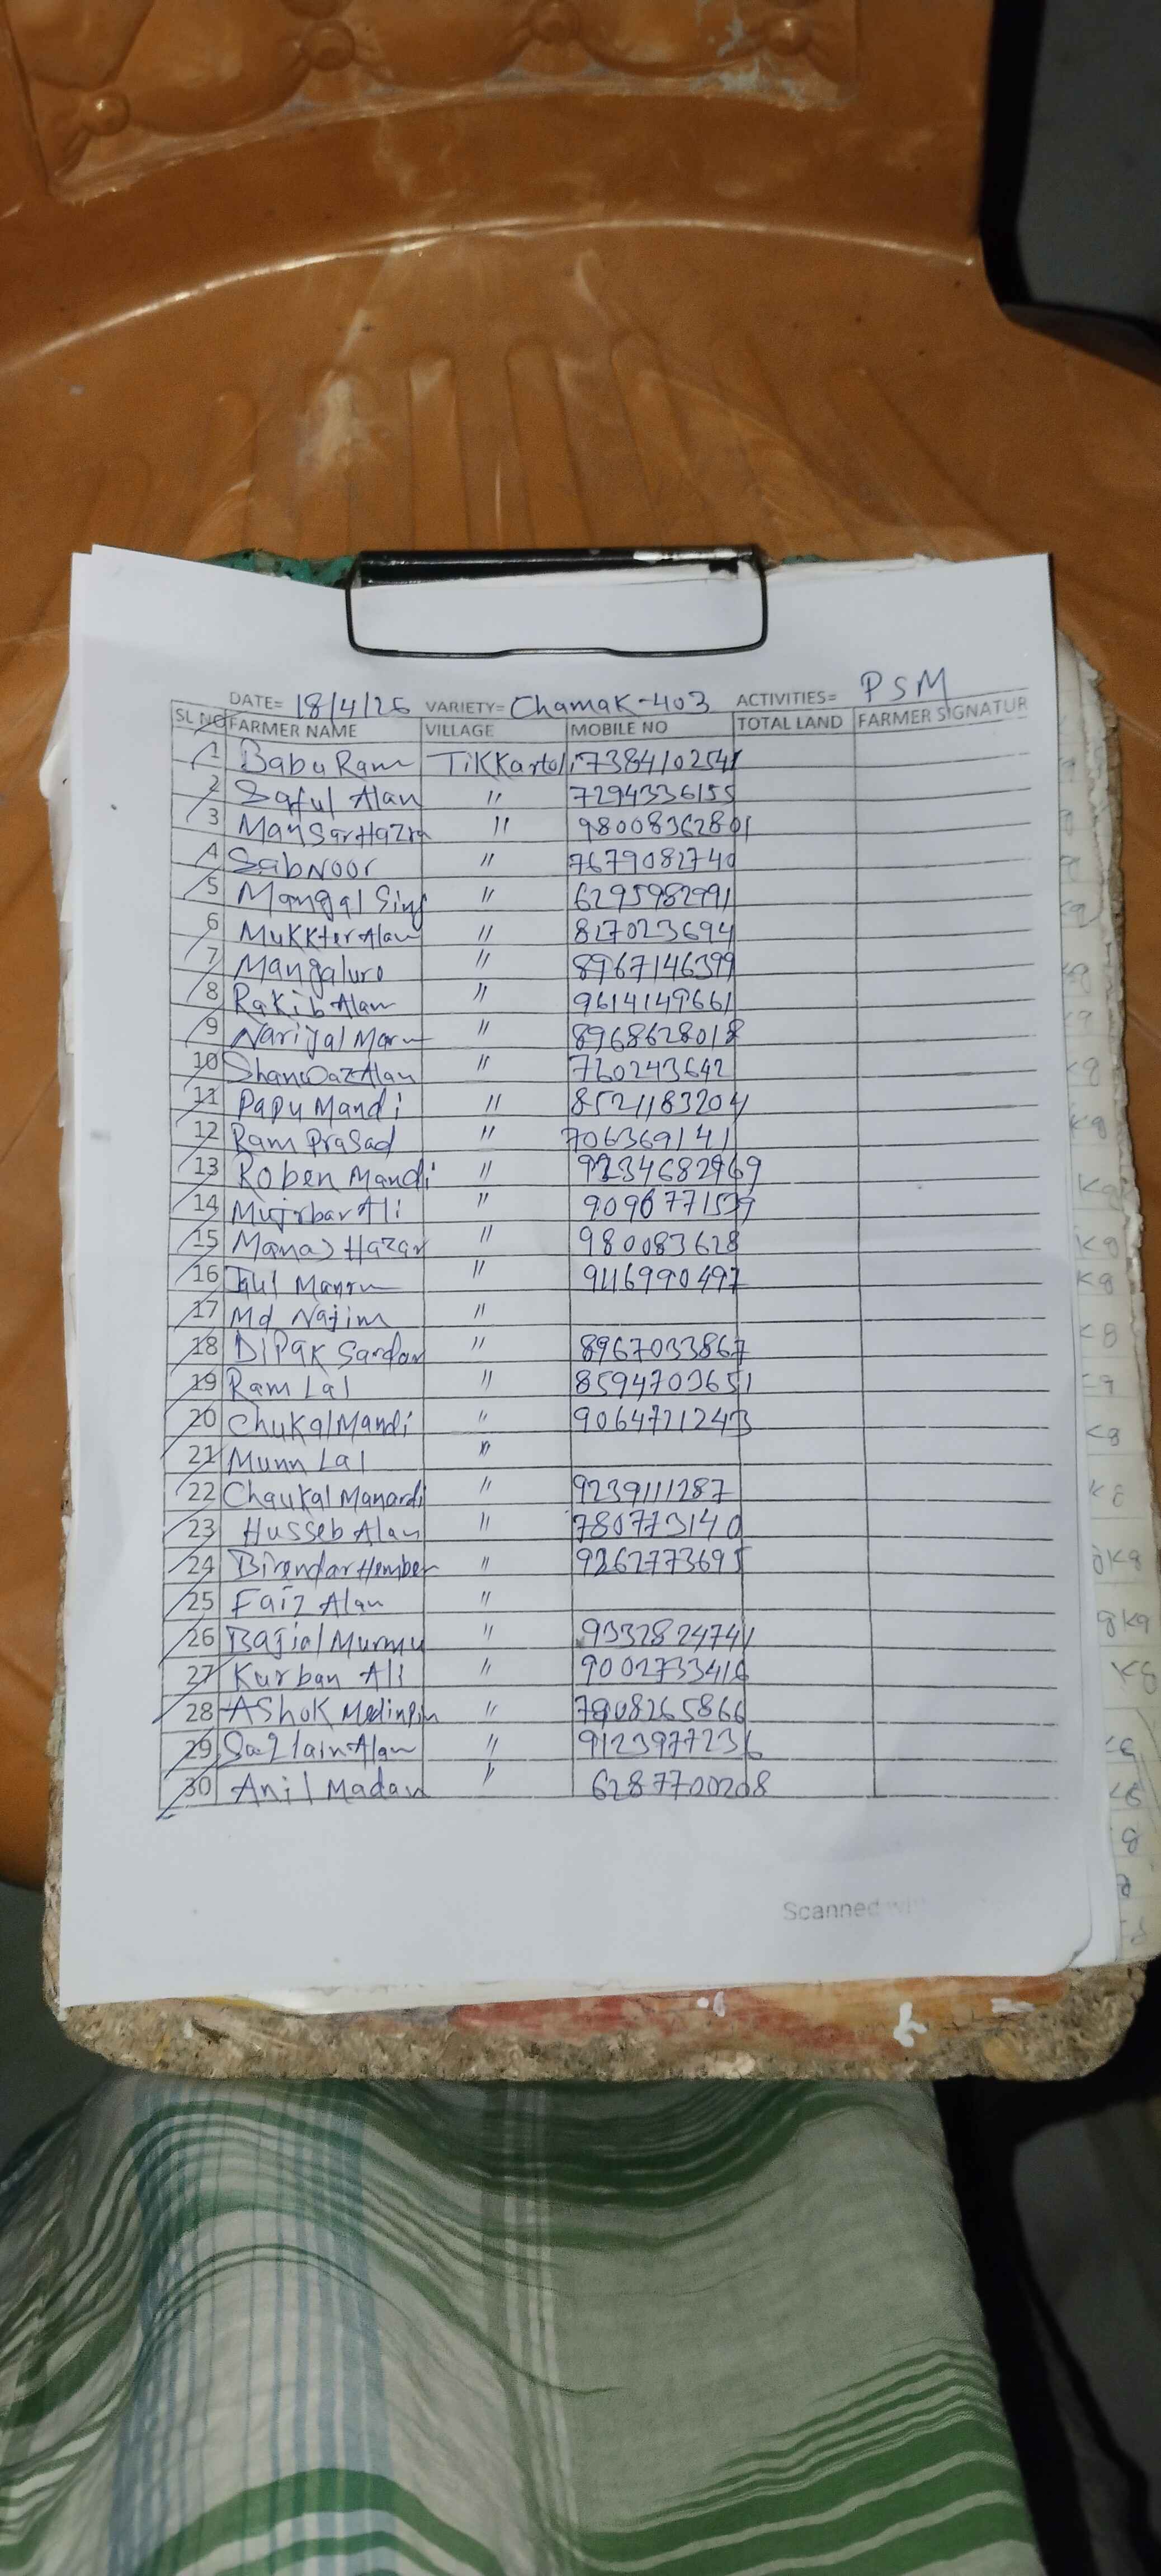 DATE= 18/4/26 VARIETY= Chamak-403 ACTIVITIES= PSM
SL NO FARMER NAME VILLAGE MOBILE NO TOTAL LAND FARMER SIGNATUR
1 Babu Ram TiKKartoli 7384102541
2 Saful Alan " 7294336155
3 Mansar Hazra " 98008362801
4 SabNoor " 7679082740
5 Mangal Sing " 6295982991
6 Mukkter Alan " 817023694
7 Mangaluro " 8967146399
8 Rakib Alam " 9614149661
9 Narijal Marn " 8968628018
10 Shanwaz Alan " 760243642
11 Papu Mandi " 8521183204
12 Ram Prasad " 706369141
13 Roben Mandi " 9234682969
14 Mujrbar Ali " 9096771539
15 Manas Hazar " 980083628
16 " 9116990497
17 Md Najim "
18 DiPak Sardar " 8967033867
19 Ram Lal " 8594703651
20 Chukal Mandi " 9064721243
21 Munn Lal "
22 Chaukal Manardi " 9239111287
23 Husseb Alan " 780773140
24 Birendar Hember " 9262773695
25 Faiz Alan "
26 Bajial Murmu " 9332824741
27 Kurban Ali " 9002733416
28 Ashok " 7908265866
29 Alam " 9123977236
30 Anil Madan " 6287700208
Scanned with